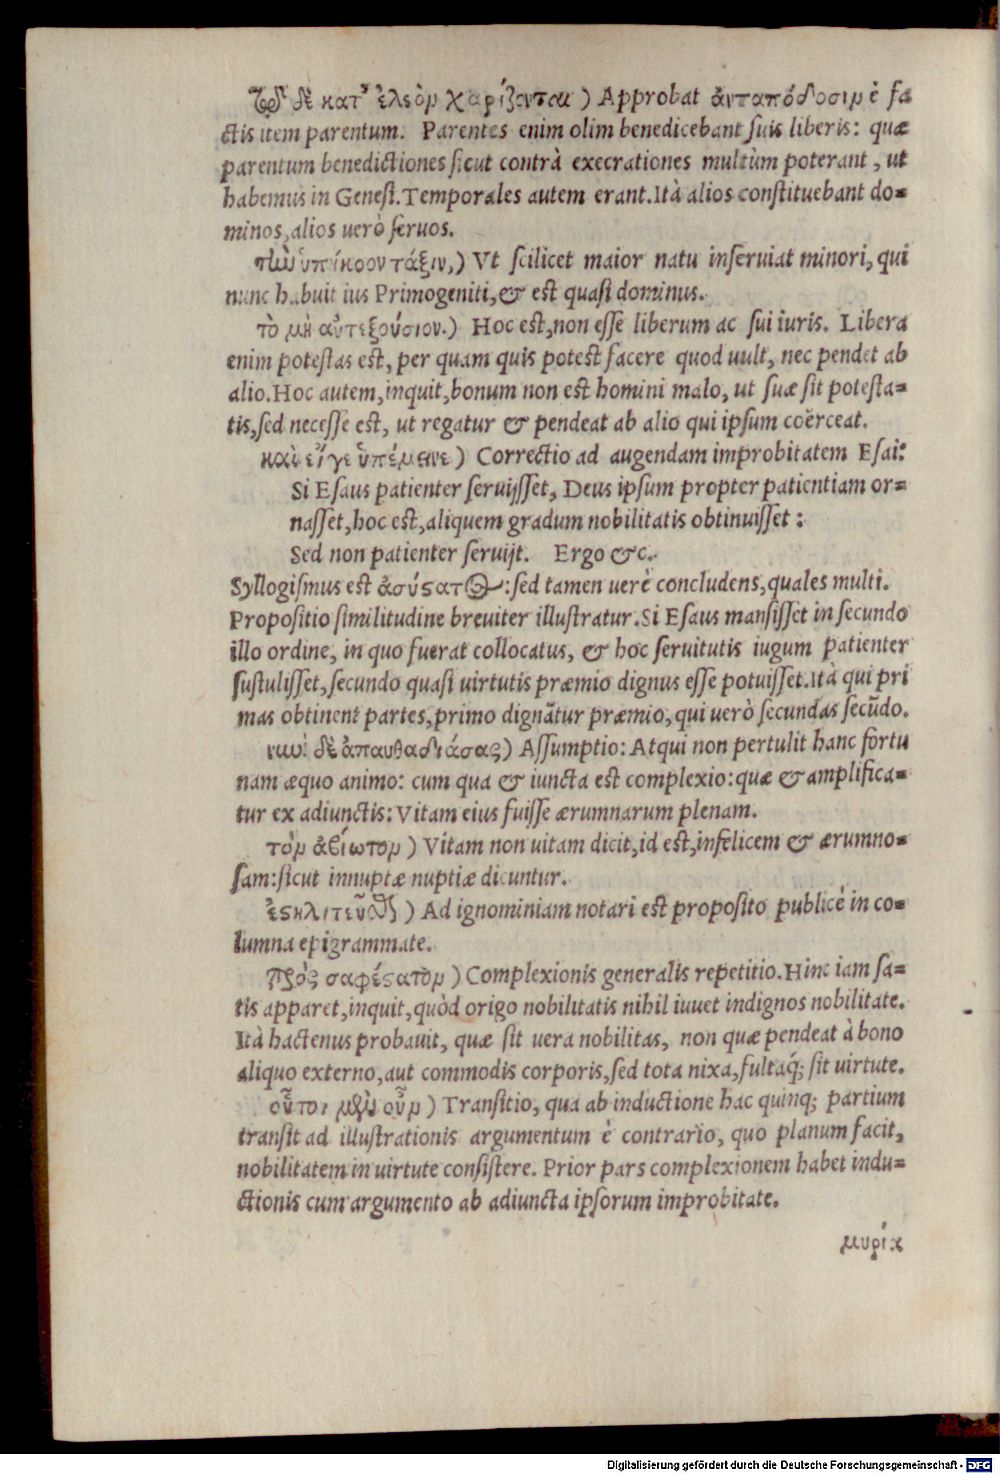 τῷ δὲ κατ' ἔλεὸν χαρίζονται ) Approbat ἀνταπόδοσιν è fa
ctis item parentum. Parentes enim olim benedicebant suis liberis: quæ
parentum benedictiones sicut contrà execrationes multùm poterant, ut
habemus in Genesi. Temporales autem erant. Ità alios constituebant do=
minos, alios uerò seruos.
τὴν ὑπήκοον τάξιν, ) Vt scilicet maior natu inseruiat minori, qui
nunc habuit ius Primogeniti, & est quasi dominus.
τὸ μὴ αὐτεξούσιον. ) Hoc est, non esse liberum ac sui iuris. Libera
enim potestas est, per quam quis potest facere quod uult, nec pendet ab
alio. Hoc autem, inquit, bonum non est homini malo, ut suæ sit potesta=
tis, sed necesse est, ut regatur & pendeat ab alio qui ipsum coërceat.
καὶ εἴγε ὑπέμεινε ) Correctio ad augendam improbitatem Esai:
Si Esaus patienter seruijsset, Deus ipsum propter patientiam or=
nasset, hoc est, aliquem gradum nobilitatis obtinuisset:
Sed non patienter seruijt. Ergo &c.
Syllogismus est ἀσύςατος: sed tamen uerè concludens, quales multi.
Propositio similitudine breuiter illustratur. Si Esaus mansisset in secundo
illo ordine, in quo fuerat collocatus, & hoc seruitutis iugum patienter
sustulisset, secundo quasi uirtutis præmio dignus esse potuisset. Ità qui pri
mas obtinent partes, primo dignãtur præmio, qui uerò secundas secũdo.
νυνὶ δὲ ἀπαυθαδιάσας) Assumptio: Atqui non pertulit hanc fortu
nam æquo animo: cum qua & iuncta est complexio: quæ & amplifica=
tur ex adiunctis: Vitam eius fuisse ærumnarum plenam.
τὸν ἀβίωτον ) Vitam non uitam dicit, id est, infelicem & ærumno=
sam: sicut innuptæ nuptiæ dicuntur.
ἐςηλιτεῦσθαι ) Ad ignominiam notari est proposito publicè in co=
lumna epigrammate.
πρὸς σαφέςατον ) Complexionis generalis repetitio. Hinc iam sa=
tis apparet, inquit, quòd origo nobilitatis nihil iuuet indignos nobilitate.
Ità hactenus probauit, quæ sit uera nobilitas, non quæ pendeat à bono
aliquo externo, aut commodis corporis, sed tota nixa, fultaq́; sit uirtute.
οὗτοι μὲν οὖν ) Transitio, qua ab inductione hac quinq; partium
transit ad illustrationis argumentum è contrario, quo planum facit,
nobilitatem in uirtute consistere. Prior pars complexionem habet indu=
ctionis cum argumento ab adiuncta ipsorum improbitate.
μυρία
Digitalisierung gefördert durch die Deutsche Forschungsgemeinschaft - DFG